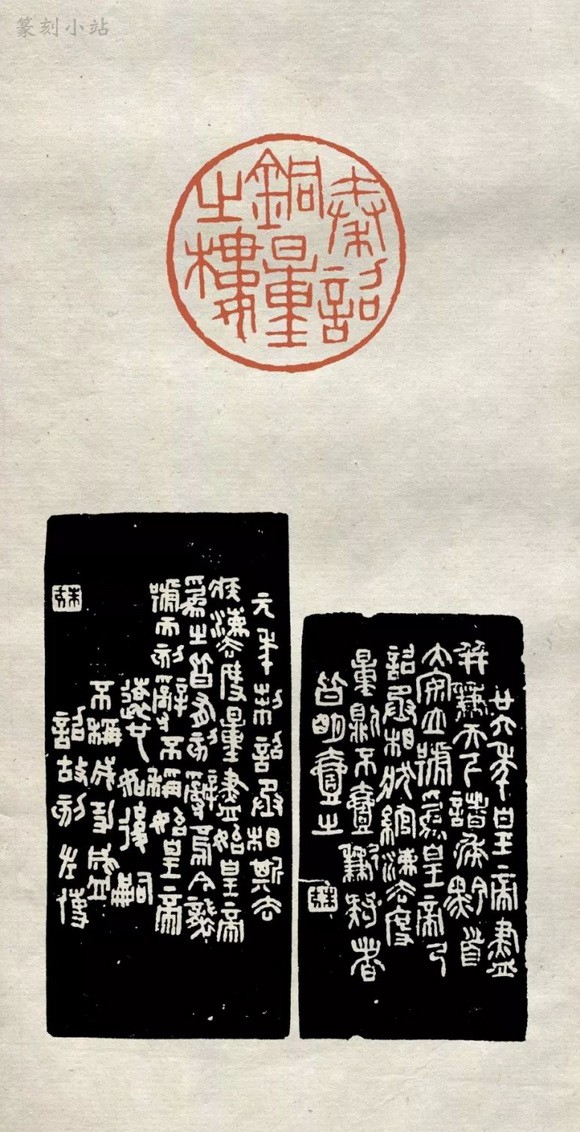 篆刻小站
秦詔
銅量
之樓
廿六年皇帝盡
并兼天下諸侯黔首
大安立號爲皇帝乃
詔丞相狀綰灋度
量則不壹歉疑者
皆明壹之
元年制詔丞相斯去
疾灋度量盡始皇帝
爲之皆有刻辭焉今襲
號而刻辭不稱始皇帝
遠也如後嗣
不稱成功盛
詔故刻左使